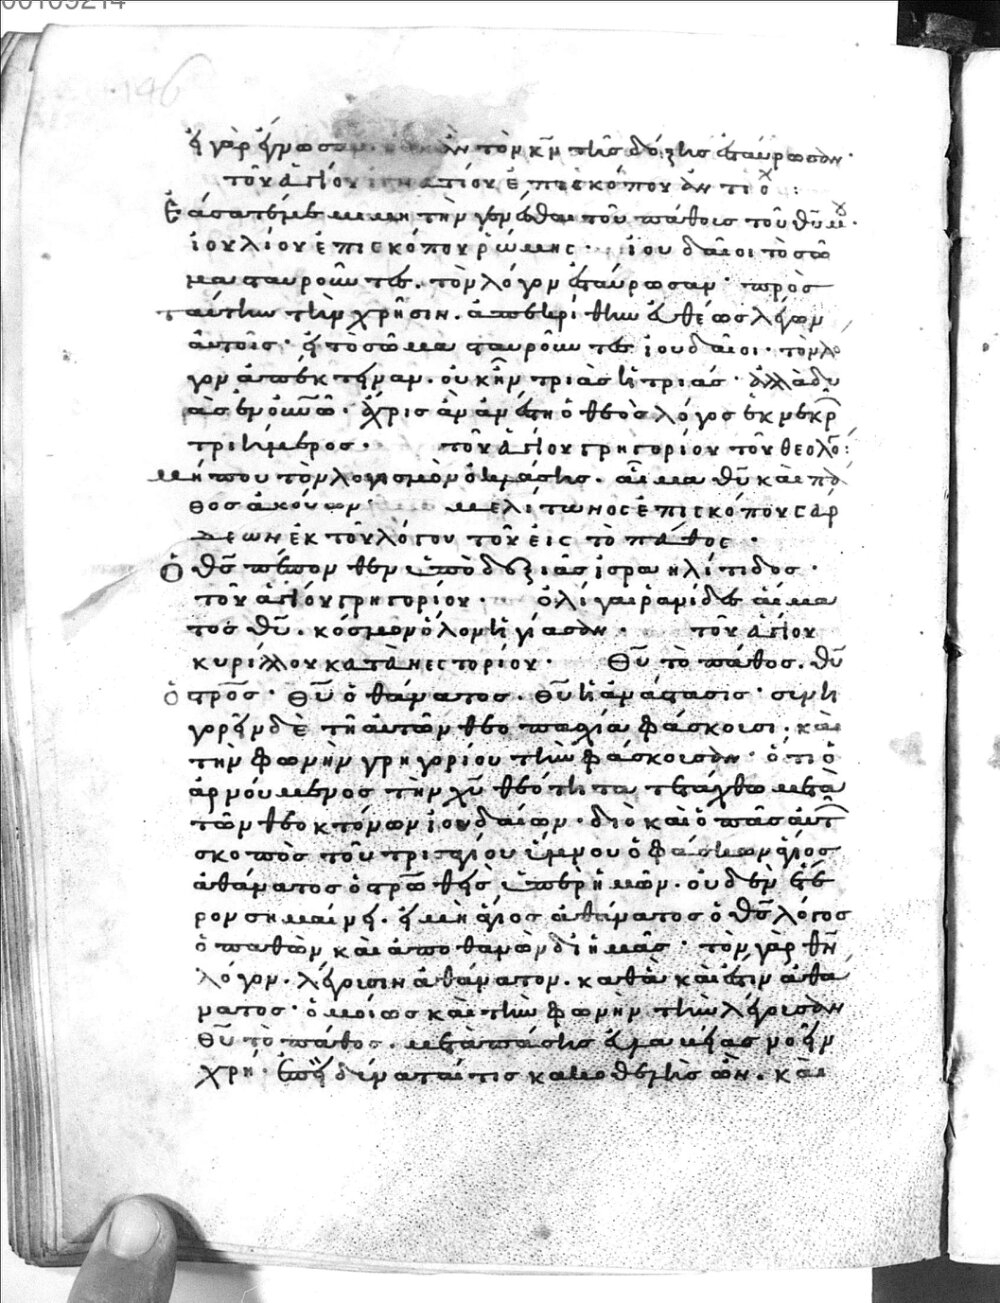 00109214
196
εἰ γὰρ ἔγνωσαν, οὐκ ἂν τὸν κν τῆς δόξης ἐσταύρωσαν·
τοῦ ἁγίου ἰγνατίου ἐπισκόπου ἀντιοχ:
Ἐάσατέ με μιμητὴν γενέσθαι τοῦ πάθους τοῦ θυ μου·
ἰουλίου ἐπισκόπου ῥώμης· ἰουδαῖοι τὸ σῶ
μα σταυροῦντες, τὸν λόγον ἐσταύρωσαν· πρὸς
ταύτην τὴν χρῆσιν,
αὐτοῖς· εἰ τὸ σῶμα σταυροῦντες ἰουδαῖοι· τὸν λό
γον ἀπέκτειναν, οὐκ ἦν τριὰς ἡ τριάς· ἀλλὰ δυ
ὰς ἄχρις ἂν ἀνέστη ὁ θεὸς λόγος ἐκ νεκρῶν
τριήμερος· τοῦ ἁγίου γρηγορίου τοῦ θεολό:
μή που τὸν λογισμὸν ὀκλάσῃς, αἷμα θυ καὶ πά
θος ἀκούων μελίτωνος ἐπισκόπου σάρ
δεων ἐκ τοῦ λόγου τοῦ εἰς τὸ πάθος·
Ὁ θς πέπονθεν ὑπὸ δεξιᾶς ἰσραηλίτιδος·
τοῦ ἁγίου γρηγορίου· ὀλίγαι ῥανίδες αἵμα
τος θυ, κόσμον ὅλον ἡγίασαν· τοῦ ἁγίου
κυρίλλου κατὰ νεστορίου· Θυ τὸ πάθος, θυ
ὁ στρος· Θυ ὁ θάνατος, θυ ἡ ἀνάστασις· συνη
γορεῖν δὲ τῇ αὐτῶν θεοπασχίᾳ φάσκουσι, καὶ
τὴν φωνὴν γρηγορίου τὴν φάσκουσαν· ὅτι ὁ
ἀρνούμενος τὴν χυ θεότητα τετάχθω μετὰ
τῶν θεοκτόνων ἰουδαίων· διὸ καὶ ὁ πᾶς αὐτ
σκοπὸς τοῦ τρισαγίου ὕμνου ὁ φάσκων ἅγιος
ἀθάνατος ὁ στρωθεὶς ὑπὲρ ἡμῶν, οὐδὲν ἕτε
ρον σημαίνει, εἰ μὴ ἅγιος ἀθάνατος ὁ θς λόγος
ὁ παθὼν καὶ ἀποθανὼν δι ἡμᾶς· τὸν γὰρ θν
λόγον, λέγουσιν ἀθάνατον, καθὰ καὶ ἔστιν ἀθά
νατος· ὁμοίως καὶ τὴν φωνὴν τὴν λέγουσαν
θυ τὸ πάθος, μετὰ πάσης νοεῖν
χρή· ἐπεὶ δύναταί τις κακοθελὴς ὤν, καὶ